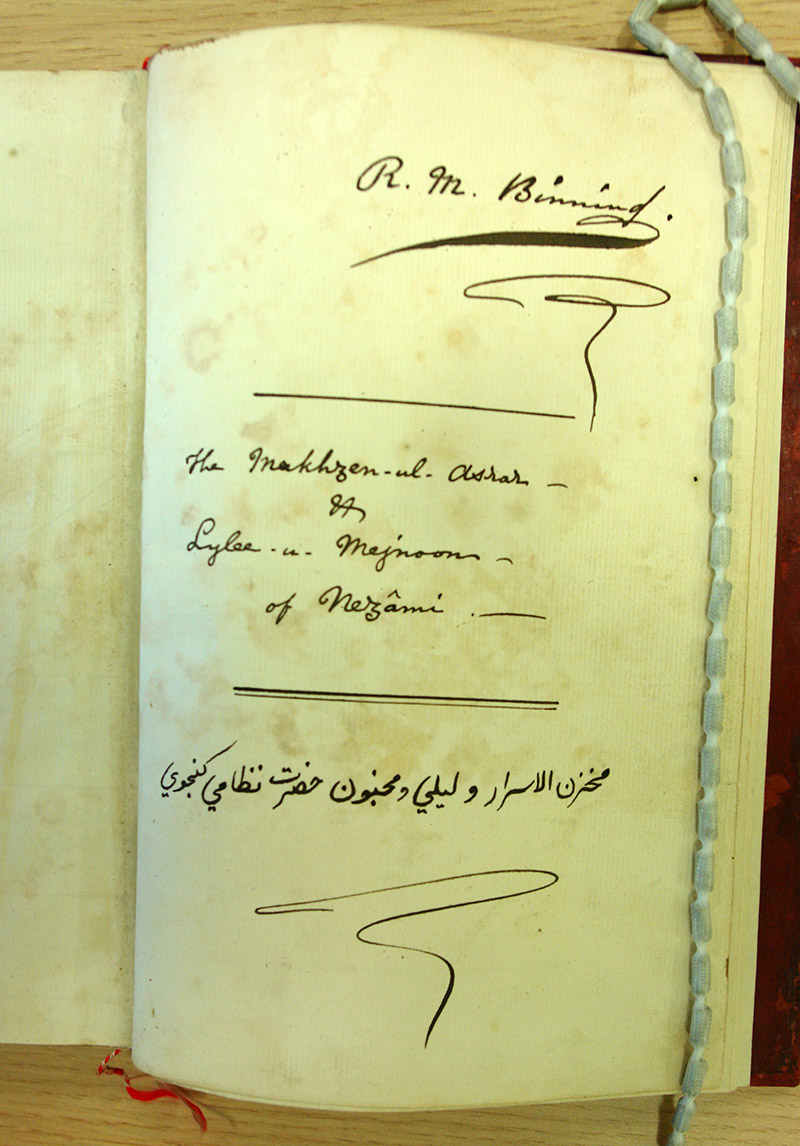 R. M. Binning.
The Makhzen-ul-Asrar –
&
Lylee-u-Mejnoon –
of Nezâmi. —
مخزن الاسرار و ليلي ومجنون حضرت نظامي كنجوي